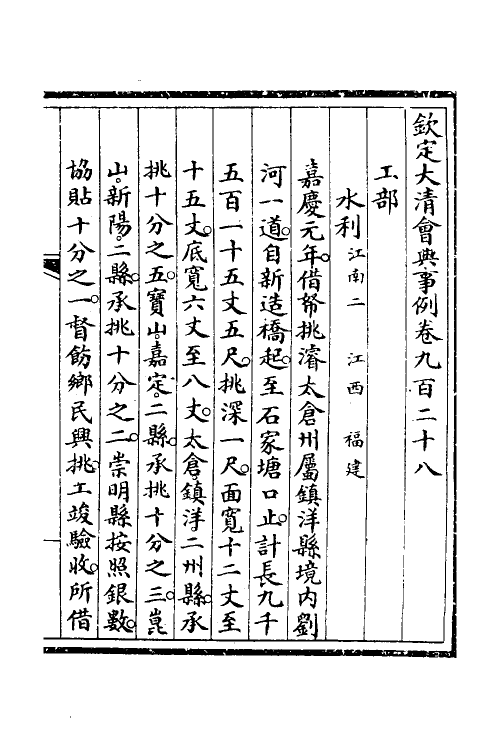 欽定大清會典事例卷九百二十八
工部
水利江南二　江西　福建
嘉慶元年。借帑挑濬太倉州屬鎮洋縣境內劉
河一道。自新造橋起。至石家塘口止。計長九千
五百一十五丈五尺。挑深一尺。面寬十二丈至
十五丈。底寬六丈至八丈。太倉鎮洋二州縣。承
挑十分之五。寶山嘉定。二縣。承挑十分之三。崑
山。新陽。二縣。承挑十分之二。崇明縣按照銀數。
協貼十分之一。督飭鄉民興挑。工竣驗收。所借